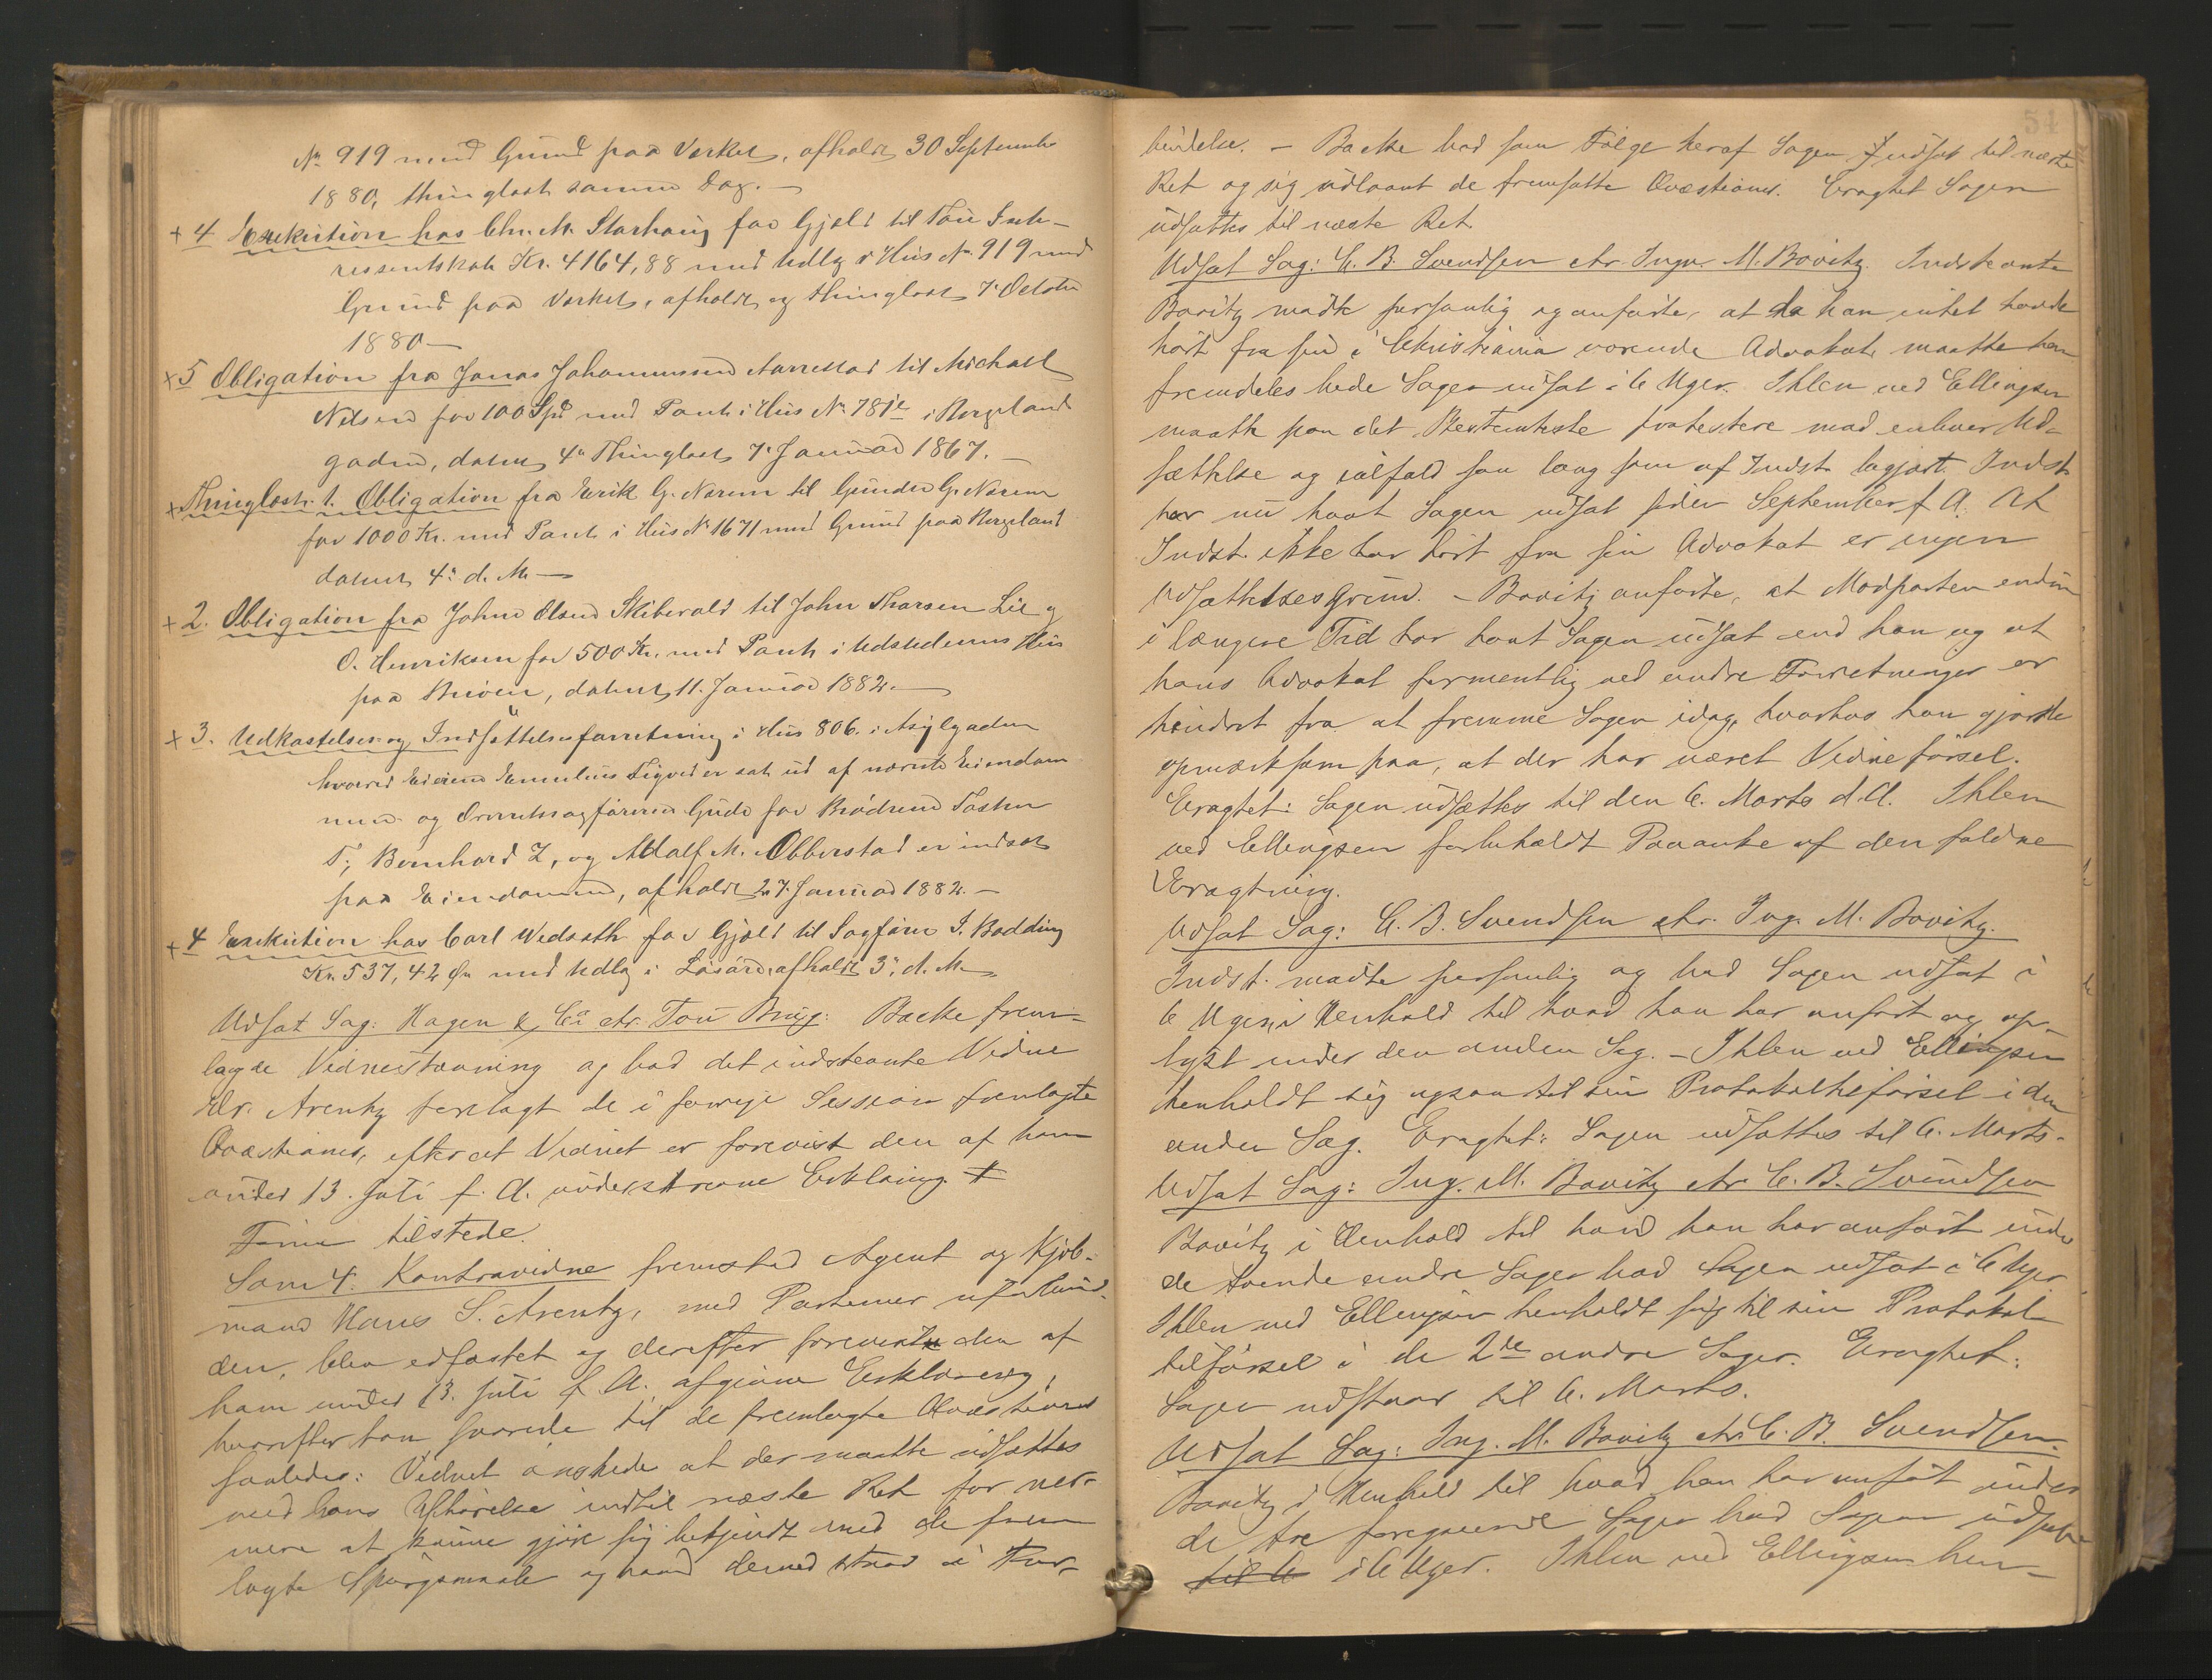 No 919 med Grund paa Værket, afholdt 30 September
1880, thinglæst samme Dag. —
+ 4 Exekution hos Chr. M. Starhaug for Gjæld til Tou Inte-
ressentskab Kr. 4164,88 med Udlæg i Hus No 919 med
Grund paa Værket, afholdt og thinglæst 7. October
1880 —
+ 5 Obligation fra Jonas Johannessen Aarrestad til Michael
Nielsen for 100 Spd med Pant i Hus No 781 i Bergeland
gaden, dateret 4. Thinglæst 7. Januar 1867. —
+ Thinglæstes. 1. Obligation fra Erik G. Norem til Gunder G. Norem
for 1000 Kr. med Pant i Hus No 1671 med Grund paa Bergeland
dateret 4. d. M. —
+ 2. Obligation fra John Olsen Skibevold til John Thorsen Lie og
O. Henriksen for 500 Kr. med Pant i Udstederens Hus
paa Støren, dateret 11. Januar 1882. —
+ 3. Udkastelses og Indsættelsesforretning i Hus 806. i Asylgaden
hvorved Eieren Enmelius Sigvad er sat ud af nævnte Eiendom
men og Overretssagfører Gude for Brødrene Tasten
T., Bernhard Z, og Adolf M. Obberstad er indsat
paa Eiendommen, afholdt 27. Januar 1882. —
+ 4 Exekution hos Carl Wedseth for Gjæld til Sagfører I. Bødding
Kr. 537,42 Øre med Udlæg i Løsøre, afholdt 3. d. M. —
Udsat Sag: Hagen & Co ctr. Tou Brug: Backe frem-
lagde Vidnestævning og bad det indstevnte Vidne
Hr. Arentz forelagt de i forrige Session fremlagte
Qvæstioner, efterat Vidnet er forevist den af ham
under 13. Juli f. A. underskrevne Erklæring. #
Fine tilstede.
Som 4. Kontravidne fremstod Agent og Kjøb-
mand Hans S. Arentz, med Parterne uforbun-
den, blev edfæstet og derefter forevist den af
ham under 13. Juli f. A. afgivne Erklæring,
hvorefter han svarede til de fremlagte Qvæstioner
saaledes: Vidnet ønskede at der maatte udsættes
med hans Afhørelse indtil næste Ret for nær-
mere at kunne gjøre sig bekjendt med de frem
lagte Spørgsmaale og hvad dermed staar i For-
51
bindelse. — Backe bad som Følge heraf Sagen udsat til næste
Ret og sig udlaant de fremsatte Qvæstioner. Eragtet Sagen
udsættes til næste Ret.
Udsat Sag: C. B. Svendsen ctr. Ingv. M. Bovitz. Indstevnte
Bovitz mødte personlig og anførte, at da han intet havde
hørt fra sin i Christiania værende Advokat, maatte han
fremdeles bede Sagen udsat i 6 Uger. Ihlen ved Ellingsen
maatte paa det Bestemteste protestere mod enhver Ud-
sættelse og ialfald saa lang som af Indst. begjært. Indst.
har nu havt Sagen udsat siden September f. A. At
Indst. ikke har hørt fra sin Advokat er ingen
Udsættelsesgrund. — Bovitz anførte, at Modparten endnu
i længere Tid har havt Sagen udsat end han og at
hans Advokat formentlig ved andre Forretninger er
hindret fra at fremme Sagen idag, hvorhos han gjorde
opmærksom paa, at der har været Vidneførsel.
Eragtet: Sagen udsættes til den 6. Marts d. A. Ihlen
ved Ellingsen forbeholdt Paaanke af den faldne
Eragtning.
Udsat Sag: C. B. Svendsen ctr. Ing. M. Bovitz.
Indst. mødte personlig og bad Sagen udsat i
6 Uger, i Henhold til hvad han har anført og op-
lyst under den anden Sag. — Ihlen ved Ellingsen
henholdt sig ogsaa til sin Protokoltilførsel i den
anden Sag. Eragtet: Sagen udsættes til 6. Marts.
Udsat Sag: Ing. M. Bovitz ctr. C. B. Svendsen
Bovitz i Henhold til hvad han har anført under
de tvende andre Sager bad Sagen udsat i 6 Uger
Ihlen ved Ellingsen henholdt sig til sin Protokol-
tilførsel i de 2de andre Sager. Eragtet:
Sagen udstaar til 6. Marts.
Udsat Sag: Ing. M. Bovitz ctr. C. B. Svendsen.
Bovitz i Henhold til hvad han har anført under
de tre foregaaende Sager bad Sagen udsat
til 6 i 6 Uger. Ihlen ved Ellingsen hen-